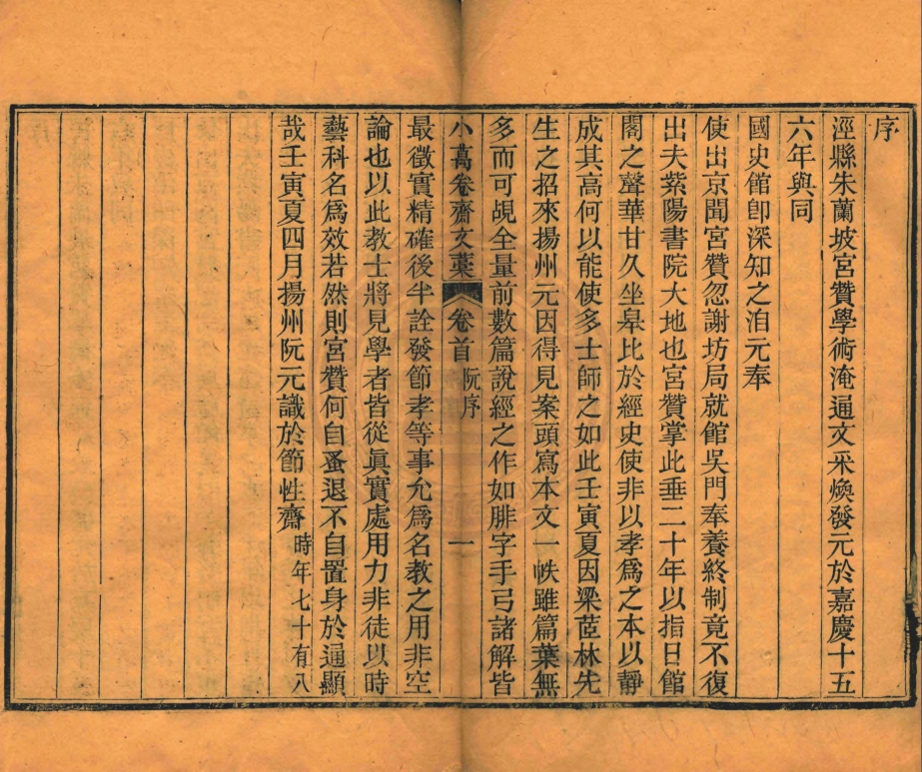 序
涇縣朱蘭坡宮贊學術淹通文采煥發元於嘉慶十五
六年與同
國史館卽深知之洎元奉
使出京聞宮贊忽謝坊局就館吳門奉養終制竟不復
出夫紫陽書院大地也宮贊掌此垂二十年以指日館
閣之聲華甘久坐皋比於經史使非以孝爲之本以靜
成其高何以能使多士師之如此壬寅夏因梁茝林先
生之招來揚州元因得見案頭寫本文一帙雖篇葉無
多而可覘全量前數篇說經之作如腓字手弓諸解皆
小萬卷齋文藁 卷首 阮序 一
最徵實精確後半詮發節孝等事允爲名教之用非空
論也以此教士將見學者皆從眞實處用力非徒以時
藝科名爲效若然則宮贊何自蚤退不自置身於通顯
哉壬寅夏四月揚州阮元識於節性齋時年七十有八